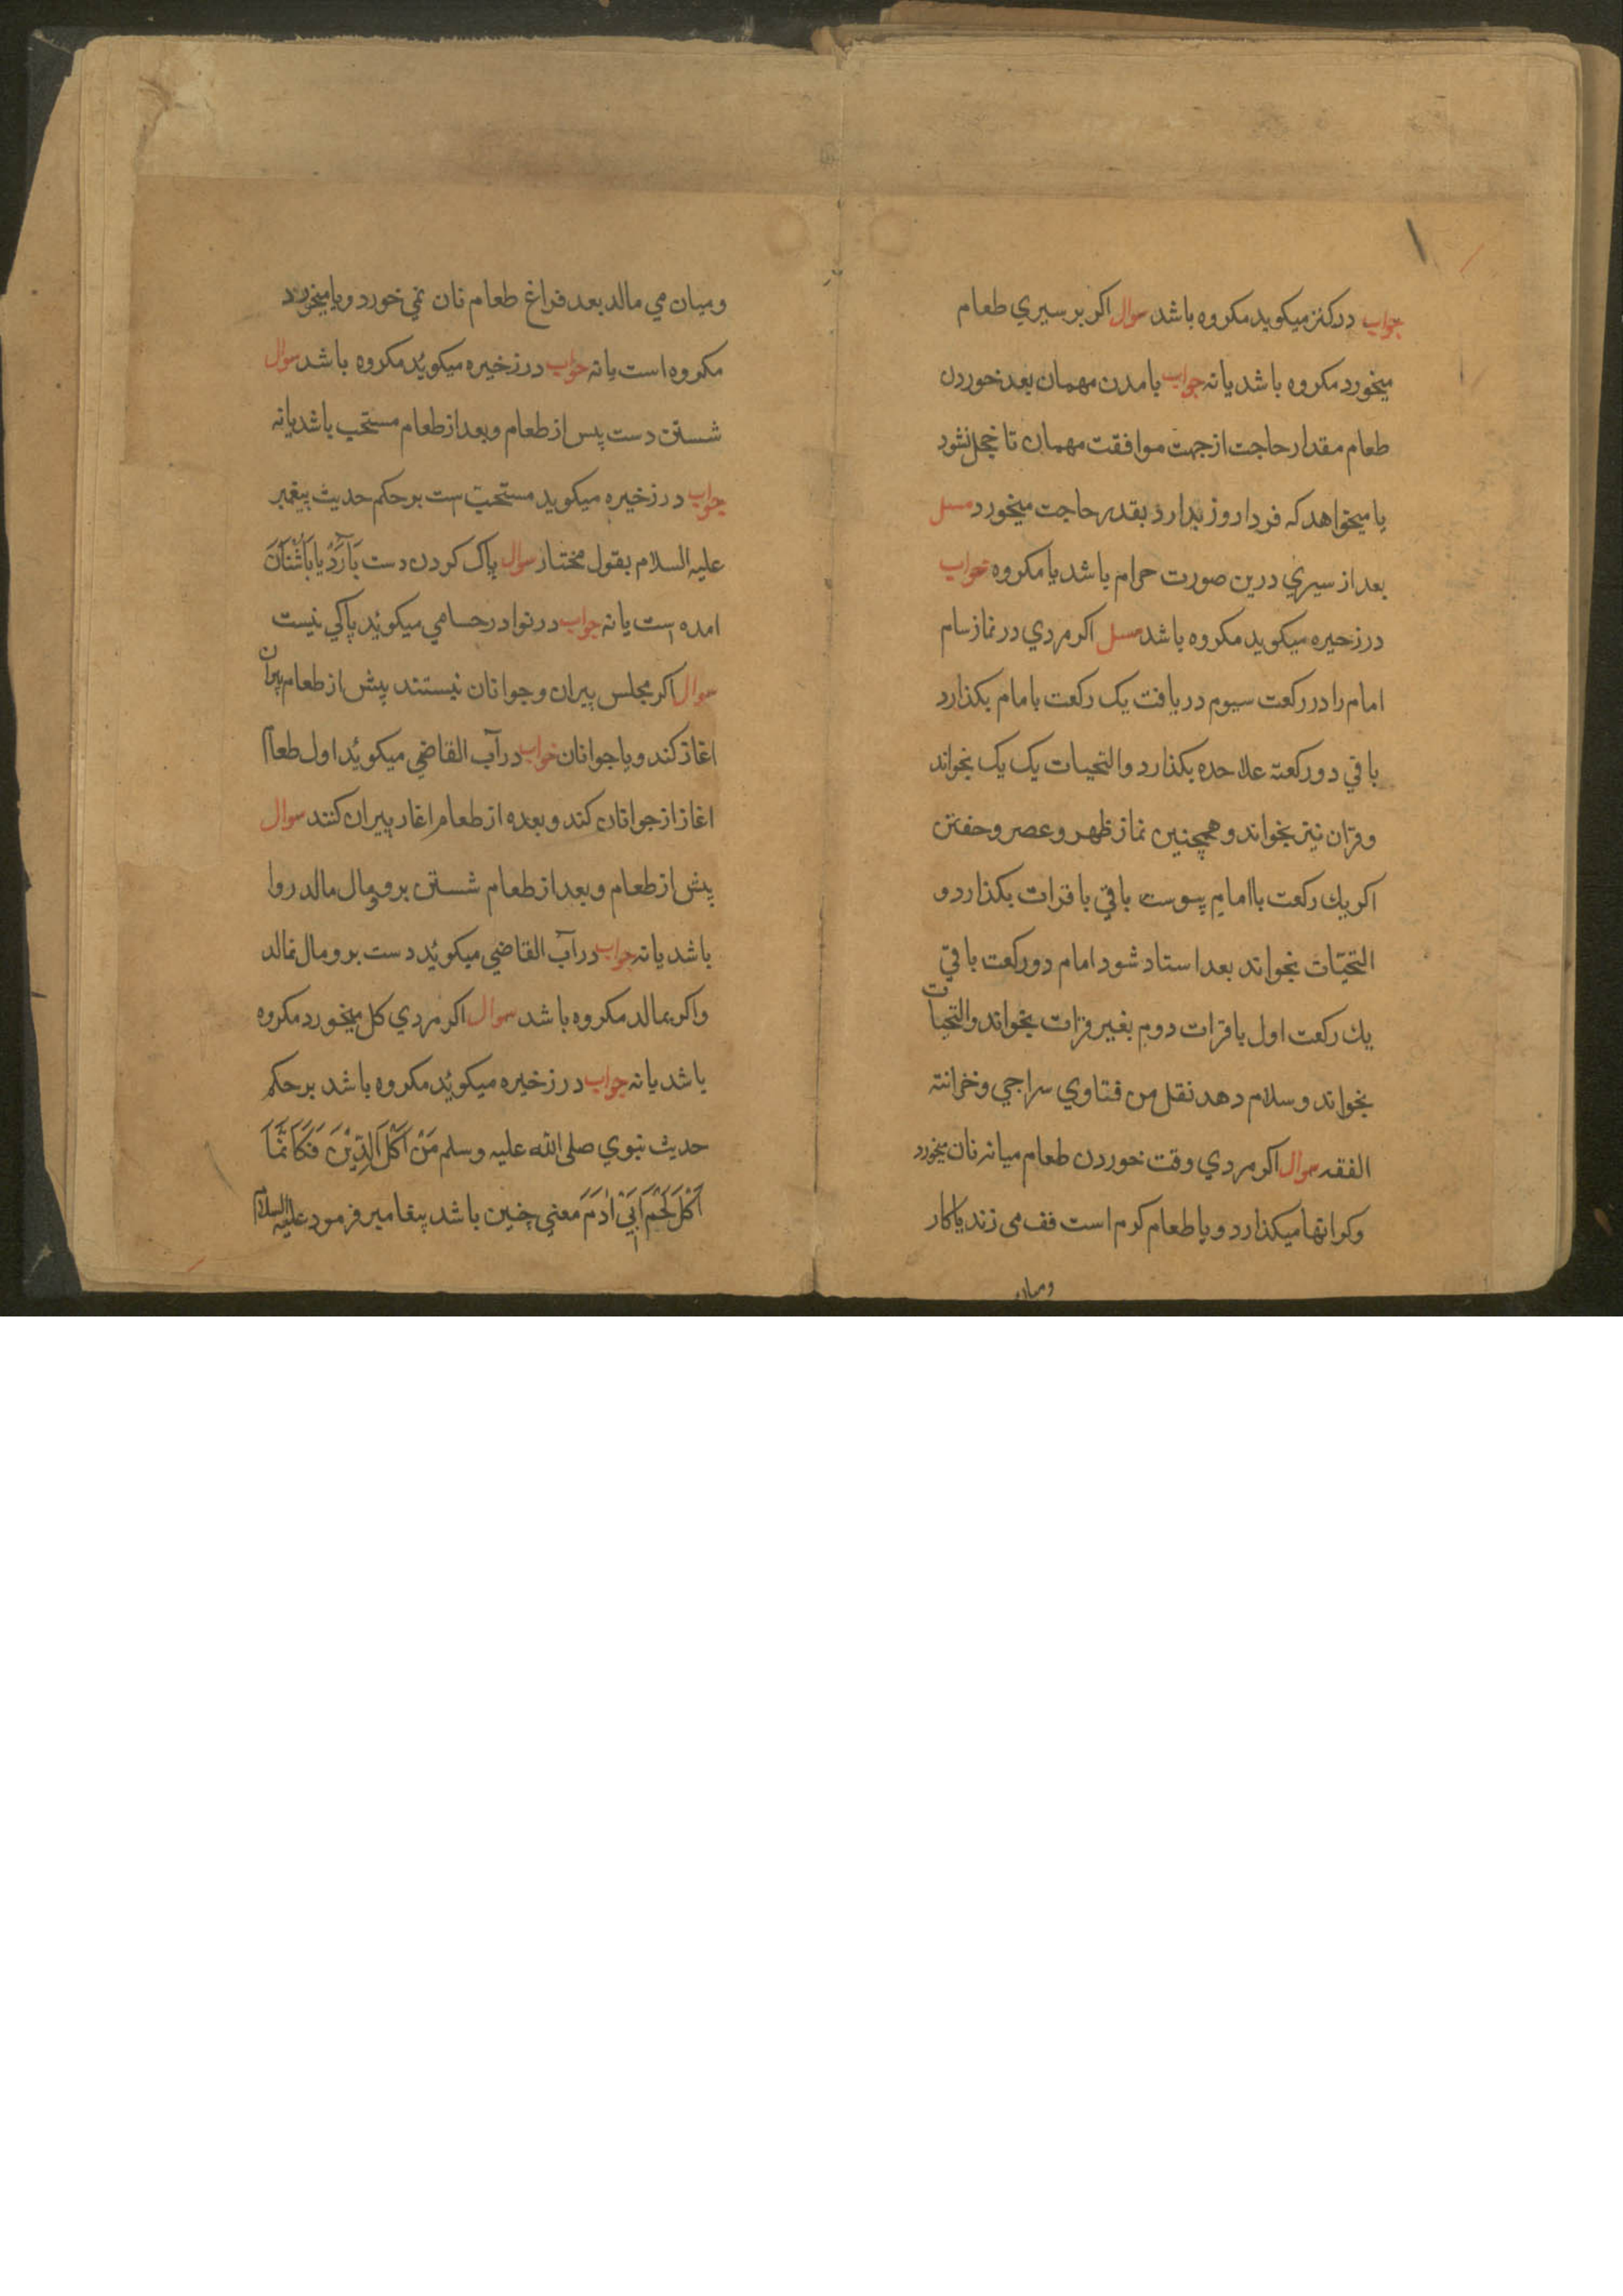 جواب درکنز میکوید مکروه باشد سوال اکر بر سیري طعام
میخورد مکروه باشد یا نه جواب با مدن مهمان بعد خوردن
طعام مقدار حاجت از جهت موافقت مهمان تا خجل نشود
یا میخواهد که فردا روز بدارد بقدر حاجت میخورد مسل
بعد از سیري درین صورت حرام باشد یا مکروه جواب
در زخیره میکوید مکروه باشد مسل اکر مردي در نماز سام
امام را در رکعت سیوم دریافت یک رکعت بامام بکذارد
باقي دو رکعته علاحده بکذارد والتحیات یک یک بخواند
وقران نیز بخواند و همچنین نماز ظهر و عصر و خفتن
اکر یك رکعت باامام پیوست باقي با قرات بکذارد و
التحیّات بخواند بعد استاد شود امام دو رکعت باقي
یك رکعت اول با قرات دوم بغیر قرات بخواند والتحیات
بخواند و سلام دهد نقل من فتاوي سراجي وخزانته
الفقه سوال اکر مردي وقت خوردن طعام میانه نان میخورد
وکرانها میکذارد و یا طعام کرم است فف می زند یا کار
ومیان
ومیان مي مالد بعد فراغ طعام نان نمي خورد و یا میخورد
مکروه است یا نه جواب در زخیره میکوید مکروه باشد سوال
شستن دست پس از طعام و بعد از طعام مستحب باشد یا نه
جواب در زخیره میکوید مستحب است بر حکم حدیث پیغمبر
علیه السلام بقول مختار سوال پاک کردن دست بَآرَدْ یا بَاُشْنَانَ
امده است یا نه جواب در نوادر حسامي میکوید پاکي نیست
سوال اکر مجلس پیران و جوانان نیستند پیش از طعام پیران
اغاز کند و یا جوانان جواب در آب القاضي میکوید اول طعام
اغاز از جوانان کند و بعده از طعام اغاز پیران کنند سوال
پیش از طعام و بعد از طعام شستن برومال مالد روا
باشد یا نه جواب در آب القاضي میکوید دست برومال نمالد
واکر بمالد مکروه باشد سوال اکر مردي کل میخورد مکروه
باشد یا نه جواب در زخیره میکوید مکروه باشد بر حکم
حدیث نبوي صلی الله علیه وسلم مَنْ اَکَلَ الطِّیْنَ فَکَاَنَّمَا
اَکَلَ لَحْمَ اَبِيْ اٰدَمَ معني چنین باشد پیغامبر فرمود علیه السلام